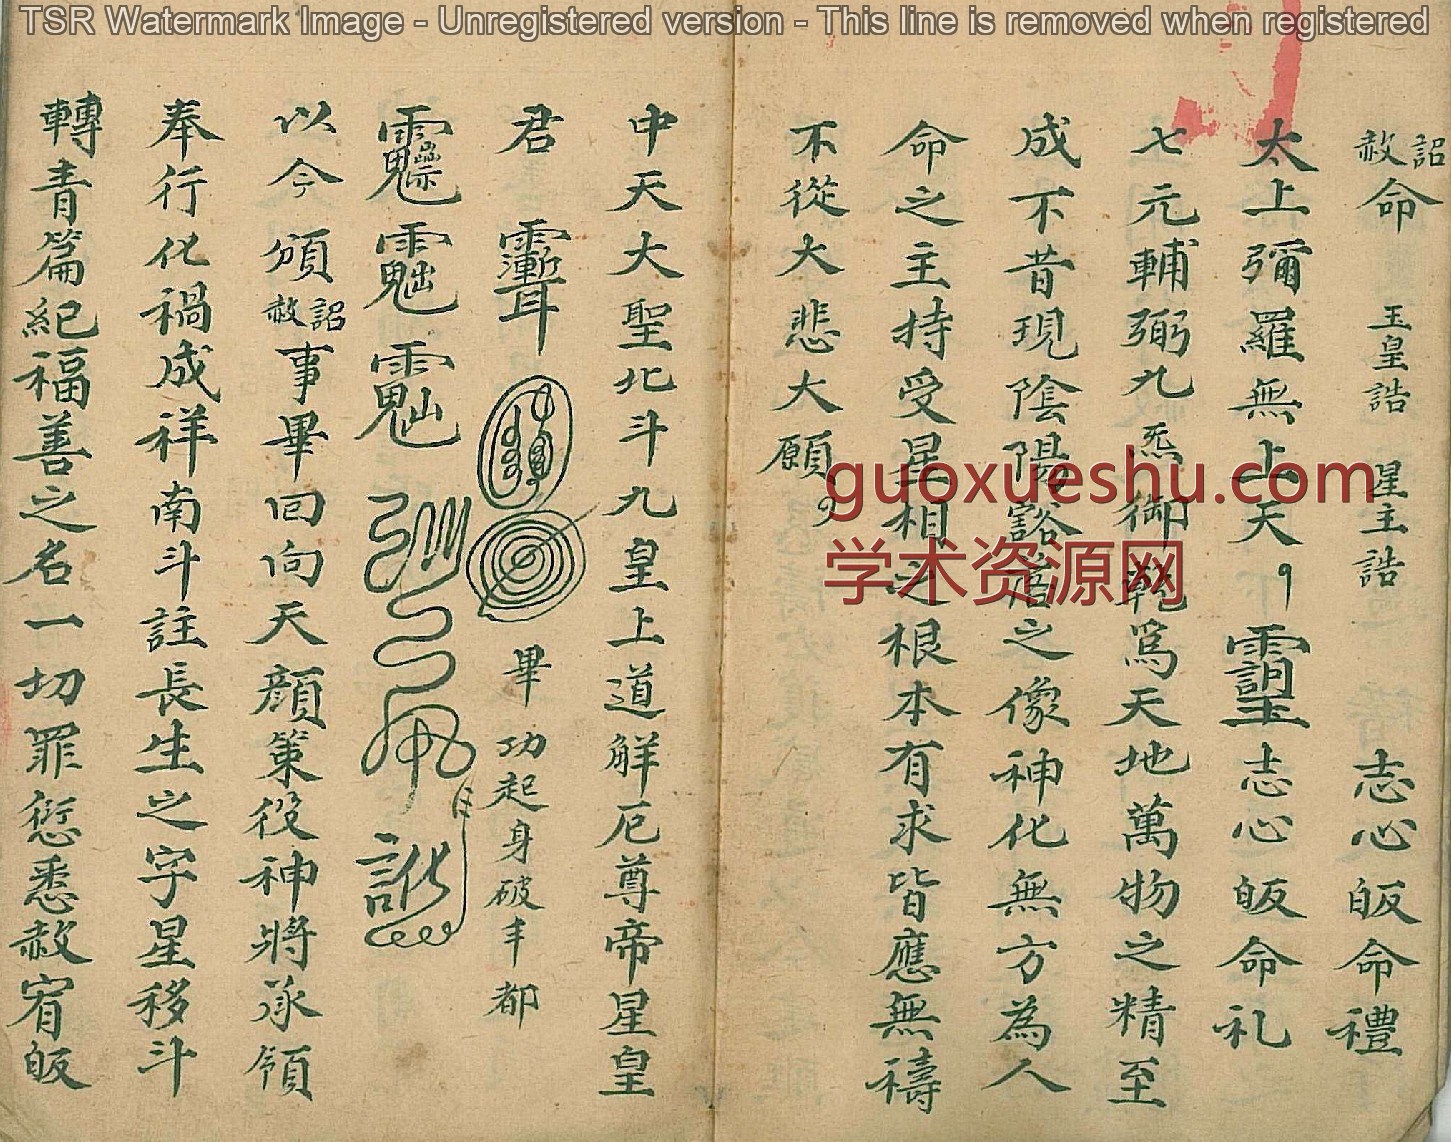 TSR Watermark Image - Unregistered version - This line is removed when registered
詔赦命 玉皇誥 星主誥 志心皈命禮
太上彌羅無上天 志心皈命礼
七元輔弼九炁御乾爲天地萬物之精至
成不昔現陰陽豁落之像神化無方為人
命之主持受星相之根本有求皆應無禱
不從大悲大願
中天大聖北斗九皇上道解厄尊帝星皇
君 畢 功起身破丰都
以今頒詔赦事畢回向天顔策役神將承領
奉行化禍成祥南斗註長生之字星移斗
轉青篇紀福善之名一切罪愆悉赦宥皈
guoxueshu.com
学术资源网